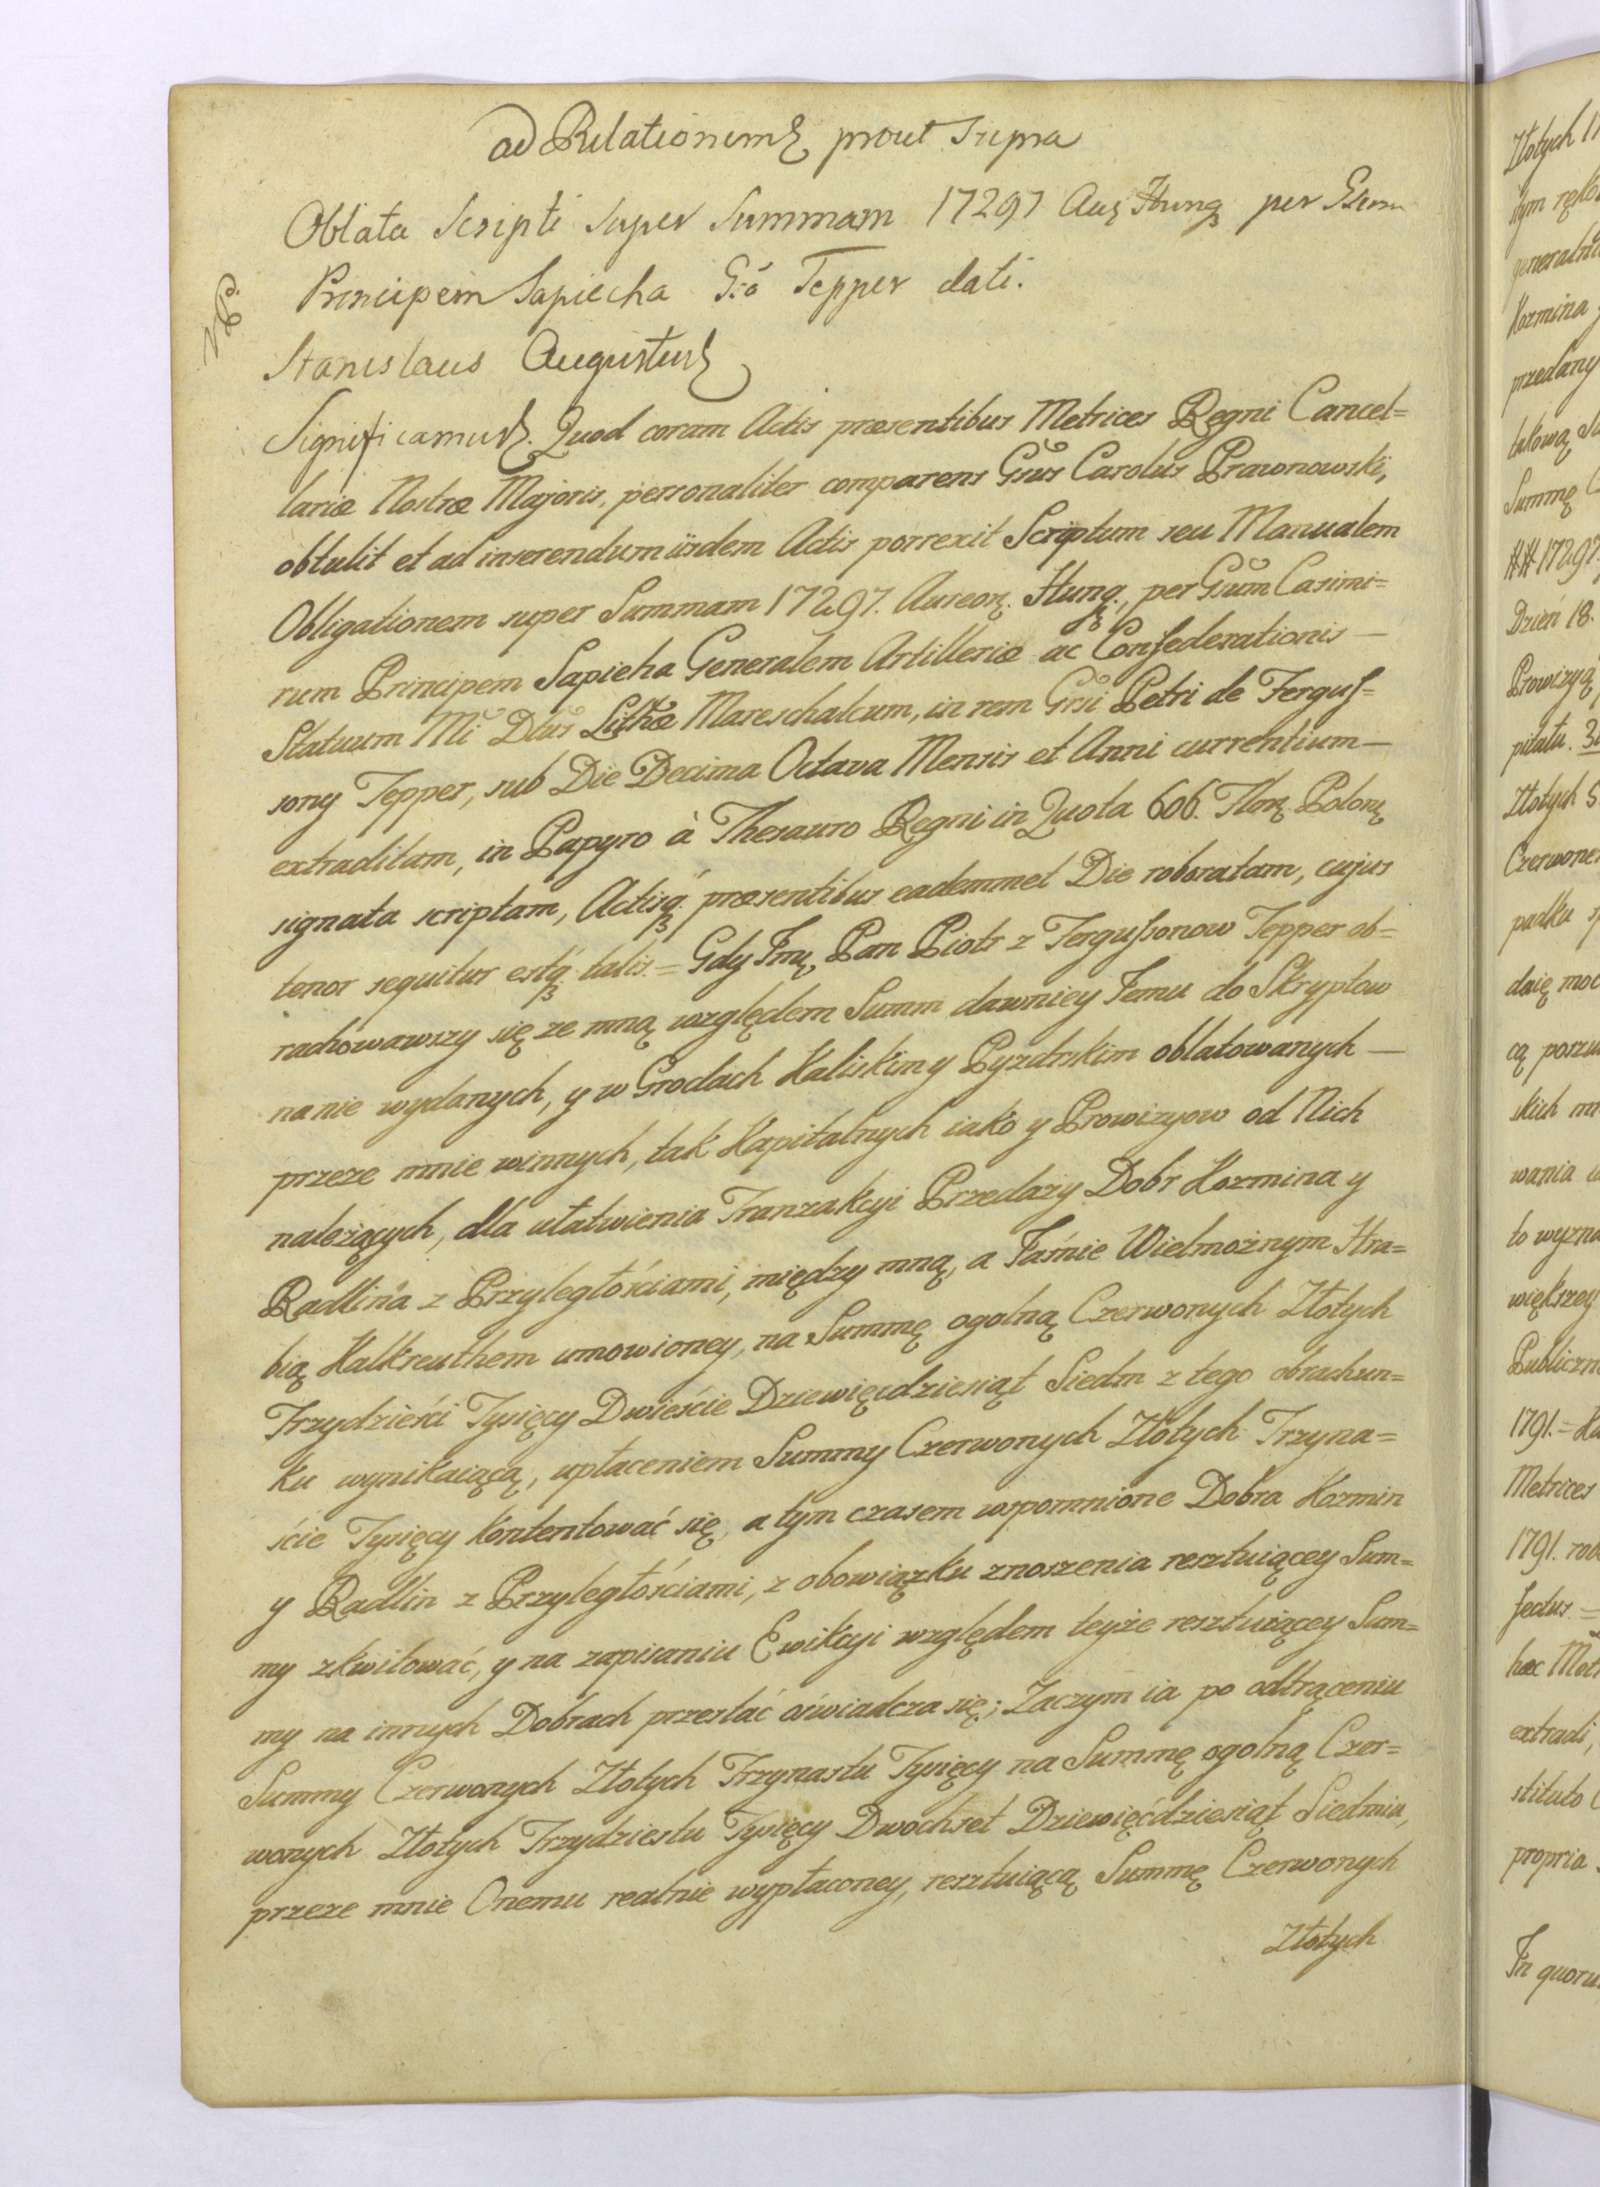 ad Relationem prout Supra
Oblata Scripti Super Summam 17297 Aur Hung per
Principem Sapiecha Gso Tepper dati.
Stanislaus Augustus
Significamus. Quod coram Actis præsentibus Metrices Regni Cancel=
lariæ Nostræ Majoris, personaliter comparens Gsus Carolus Prawnowski,
obtulit et ad inserendum iisdem Actis porrexit Scriptum seu Manualem
Obligationem super Summam 17297. Aureor. Hung., per Gsum Casimi=
rum Principem Sapieha Generalem Artilleriæ ac Confederationis —
Statuum Mi Dus Lithæ Mareschalcum, in rem Gsi Petri de Fergus=
sony Tepper, sub Die Decima Octava Mensis et Anni currentium —
extraditam, in Papyro à Thesauro Regni in Quota 606. Flor Polon
signata scriptam, Actisq præsentibus eademmet Die roboratam, cujus
tenor sequitur estq talis = Gdy Imć Pan Piotr z Fergussonow Tepper ob=
rachowawszy się ze mną względem Summ dawniey Jemu do Skryptow
na nie wydanych, y w Grodach Kaliskim y Pyzdrskim oblatowanych —
przeze mnie winnych, tak Kapitalnych iako y Prowizyow od Nich
należących, dla ułatwienia Tranzakcyi Przedaży Dobr Kozmina y
Radlina z Przyległościami, między mną, a Jaśnie Wielmożnym Hra=
bią Kalkreuthem umowioney, na Summę ogolną Czerwonych Złotych
Trzydzieści Tysięcy Dwieście Dziewięćdziesiąt Siedm z tego obrachun=
ku wynikaiącą, upłaceniem Summy Czerwonych Złotych Trzyna=
ście Tysięcy kontentować się, a tym czasem wspomnione Dobra Kozmin
y Radlin z Przyległościami, z obowiązku znoszenia resztuiącey Sum=
my zkwitować, y na zapisaniu Ewikcyi względem teyże resztuiącey Sum=
my na innych Dobrach przestać oświadcza się; Zaczym ia po odtrąceniu
Summy Czerwonych Złotych Trzynastu Tysięcy na Summę ogolną Czer=
wonych Złotych Trzydziestu Tysięcy Dwochset Dziewięćdziesiąt Siedmiu,
przeze mnie Onemu realnie wypłaconey, resztuiącą Summę Czerwonych
Złotych
Złotych
Kozmina
przedany
takową
Summę
## 17297.
Dzień 18.
Prowizyą
Złotych
Czerwone
padku
daię moc
cą
skich
wania
to wyzna
większey
Publiczn
1791. =
Metrices
1791.
hæc
extradi,
stituto
propria
In quoru